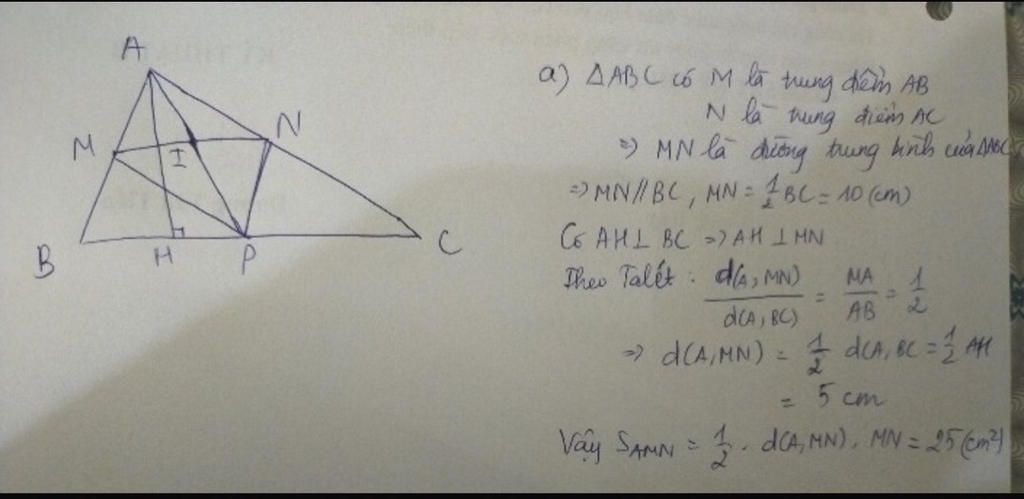 A
M
N
I
B
H
P
C
a) ΔABC có M là trung điểm AB
N là trung điểm AC
=> MN là đường trung bình của ΔABC
=> MN // BC, MN = 1/2 BC = 10 (cm)
Có AH ⊥ BC => AH ⊥ MN
Theo Talét: d(A, MN) / d(A, BC) = MA / AB = 1/2
=> d(A, MN) = 1/2 d(A, BC = 1/2 AH
= 5 cm
Vậy S_AMN = 1/2 . d(A, MN) . MN = 25 (cm²)